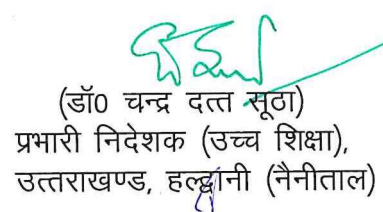 (डॉ0 चन्द्र दत्त सूठा)
प्रभारी निदेशक (उच्च शिक्षा),
उत्तराखण्ड, हल्द्वानी (नैनीताल)